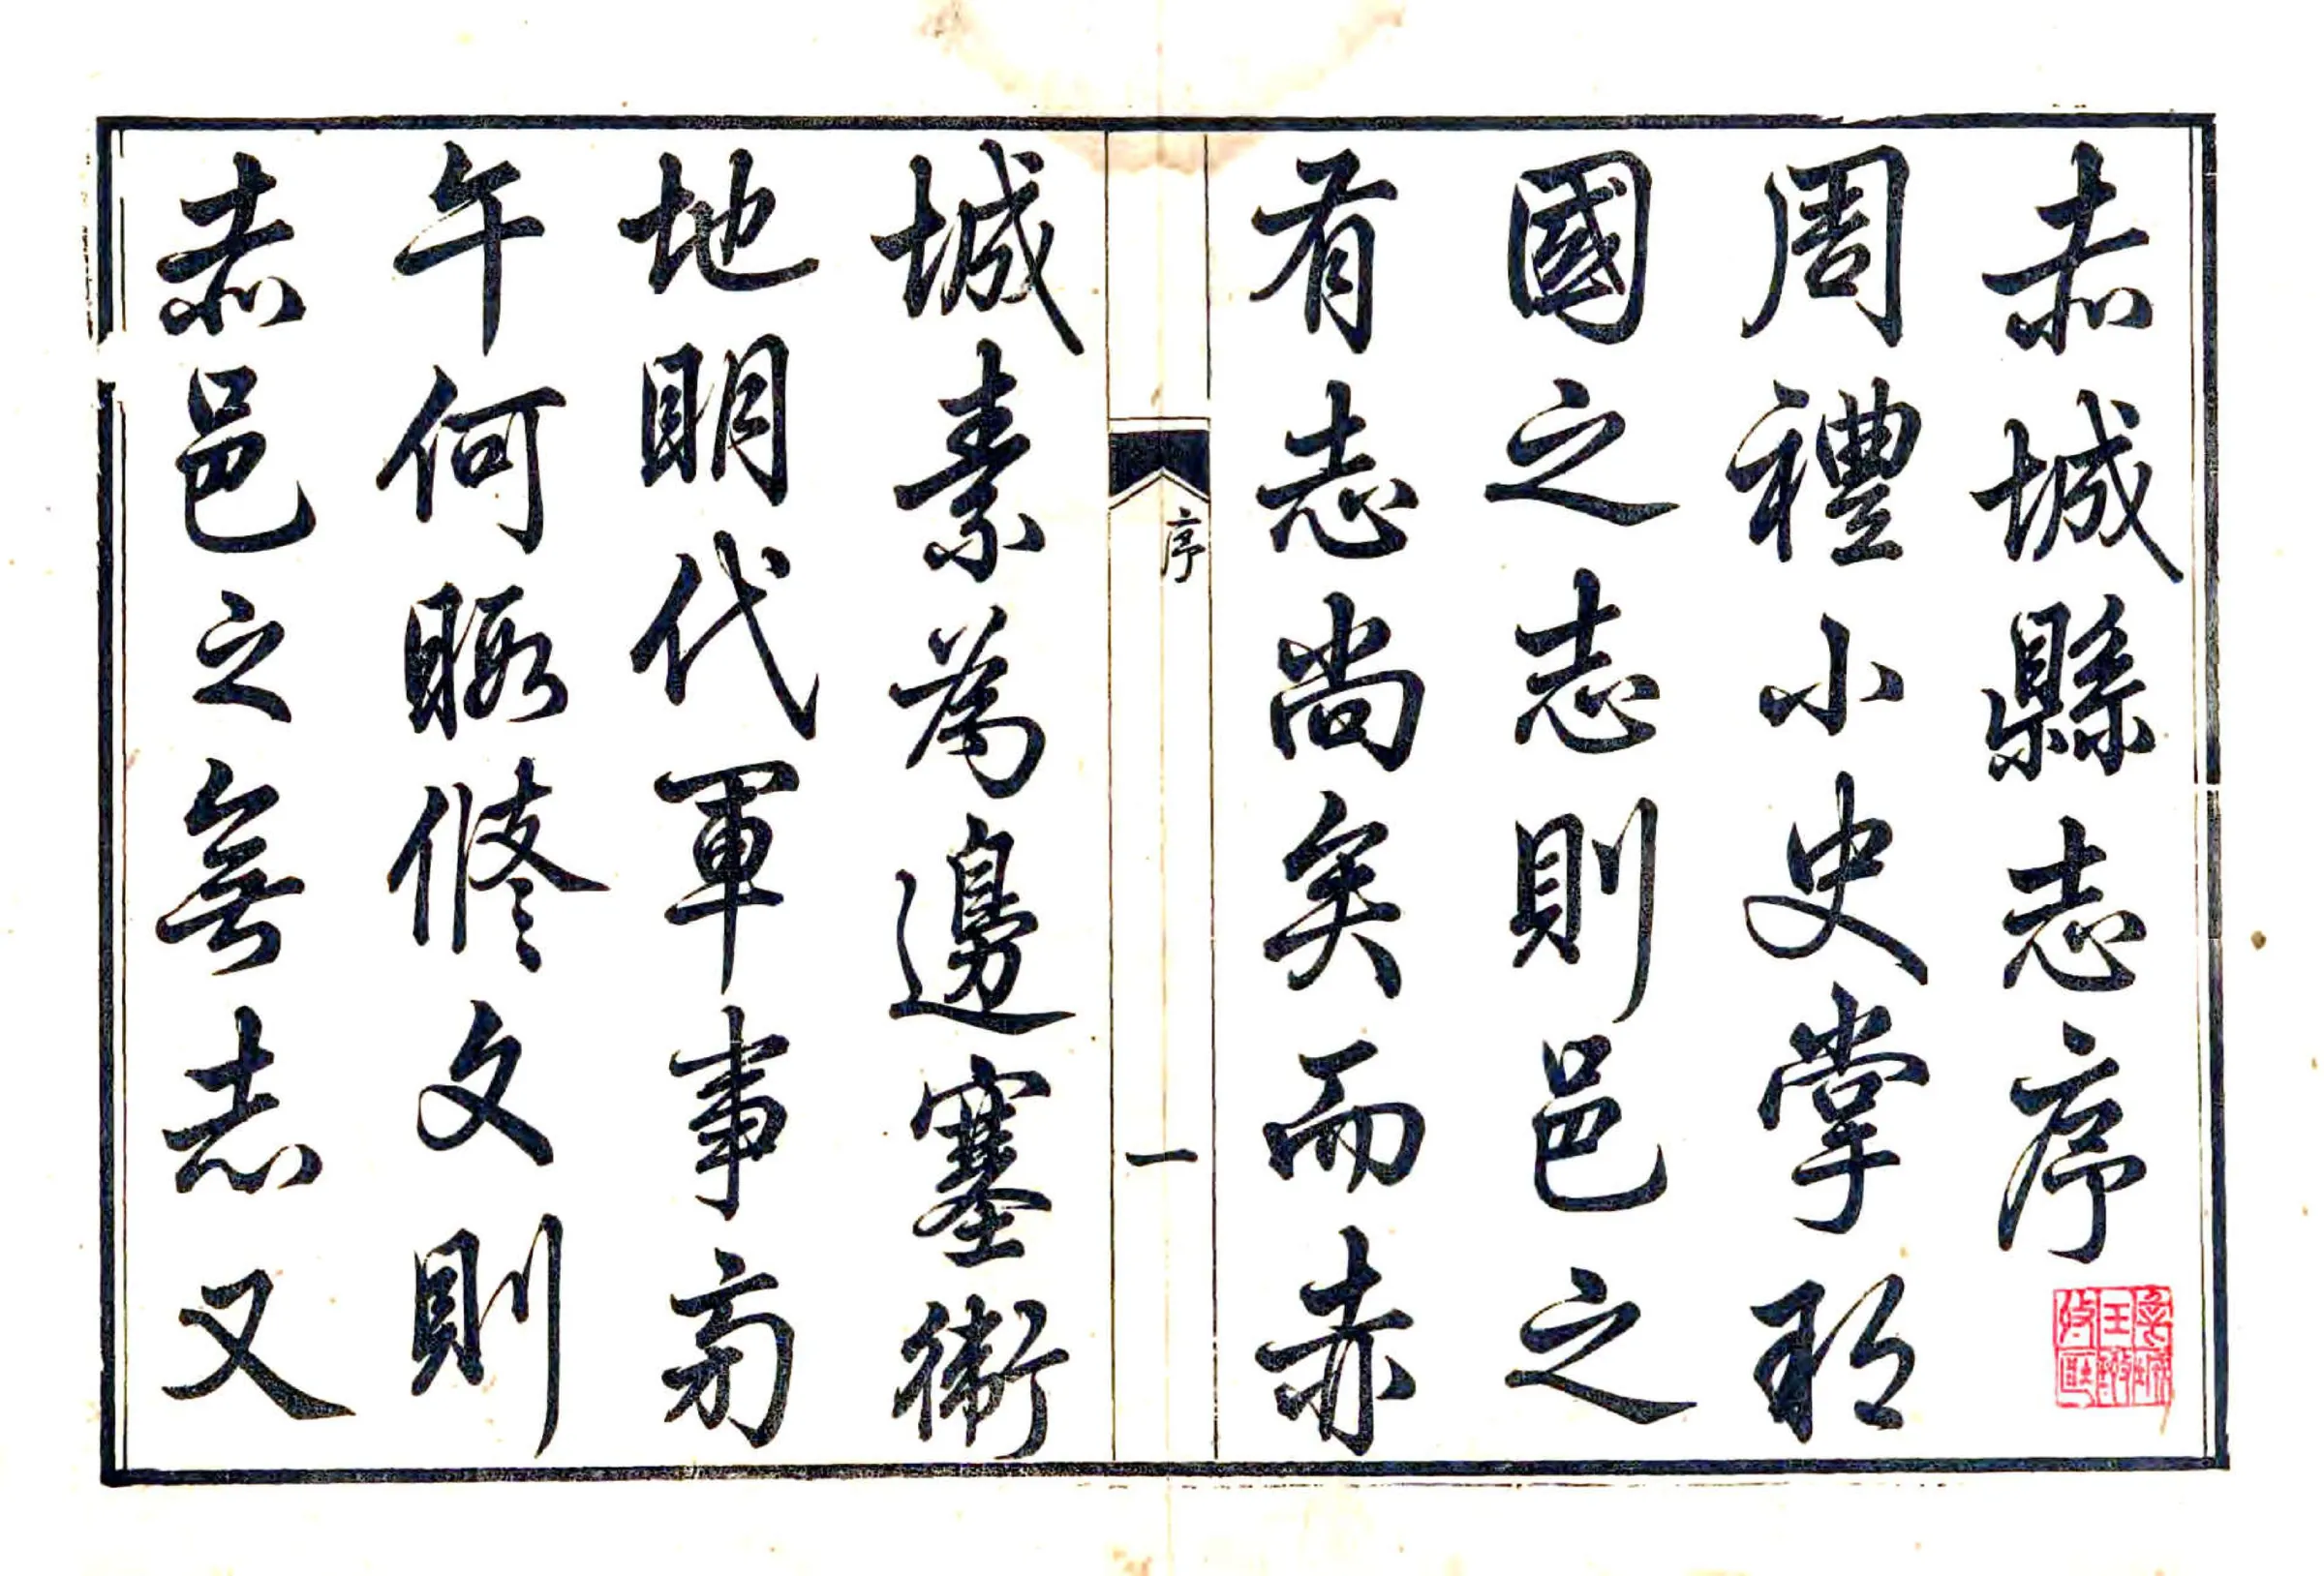 赤城縣志序
周禮小史掌邦
國之志則邑之
有志尚矣而赤
序
一
城素為邊塞衝
地眀代軍事旁
午何睱修文則
赤邑之無志又